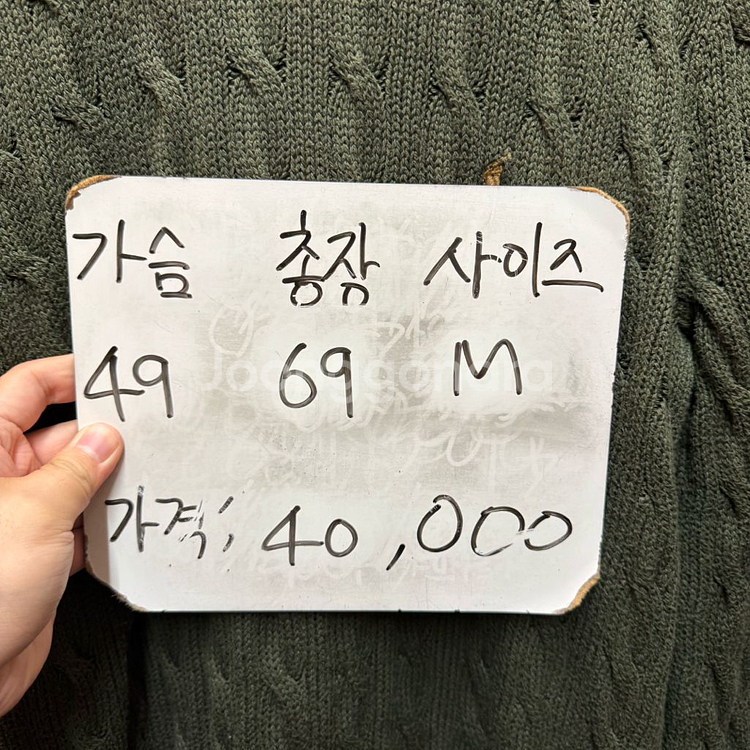 가슴 총장 사이즈
49 69 M
Joonggonara
가격; 40,000